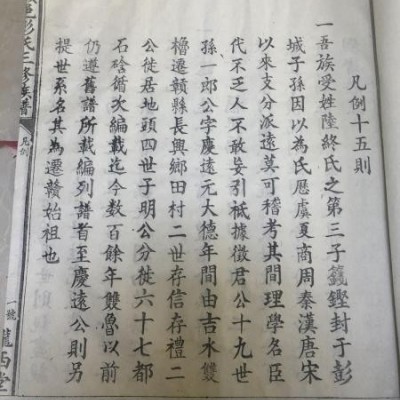 凡例十五則
一吾族受姓陸終氏之第三子籛鏗封于彭
城子孫因以為氏歷虞夏商周秦漢唐宋
以來支分派遠莫可稽考其間理學名臣
代不乏人不敢妄引祗據徵君公十九世
孫一郎公字慶遠元大德年間由吉水雙
櫓遷贛縣長興鄉田村二世存信存禮二
公徙居地頭四世子明公分徙六十七都
石硲循次編載迄今數百餘年雙魯以前
仍遵舊譜所載編列譜首至慶遠公則另
提世系名其為遷贛始祖也
彭氏三修族譜
凡例
一號
隴西堂